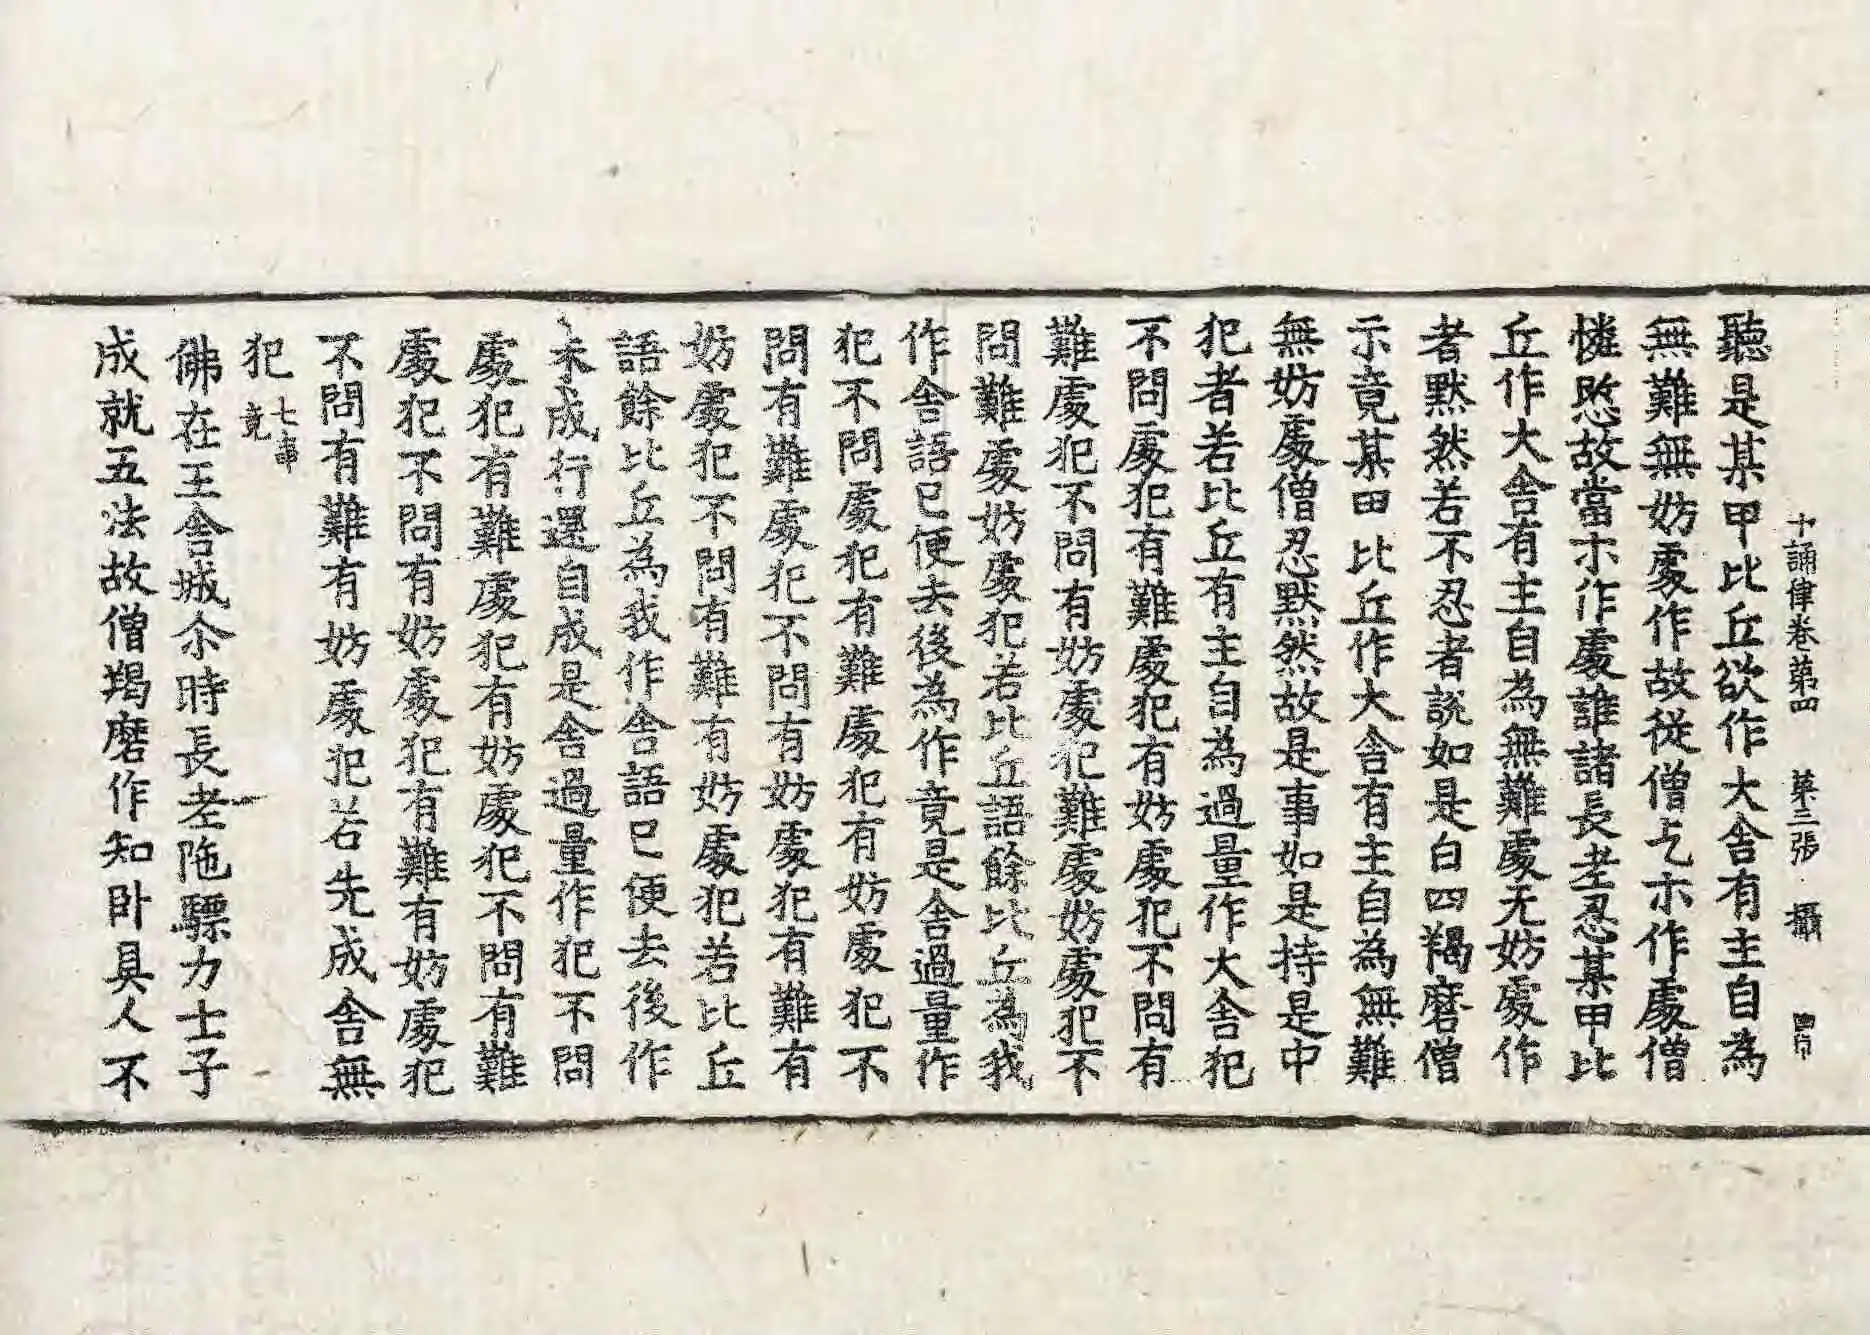 十誦律卷第四 第三張 攝
聽是某甲比丘欲作大舍有主自為
無難無妨處作故從僧乞示作處僧
憐愍故當示作處誰諸長老忍某甲比
丘作大舍有主自為無難處无妨處作
者默然若不忍者說如是白四羯磨僧
示竟某田比丘作大舍有主自為無難
無妨處僧忍默然故是事如是持是中
犯者若比丘有主自為過量作大舍犯
不問處犯有難處犯有妨處犯不問有
難處犯不問有妨處犯難處妨處犯不
問難處妨處犯若比丘語餘比丘為我
作舍語已便去後為作竟是舍過量作
犯不問處犯有難處犯有妨處犯不
問有難處犯不問有妨處犯有難有
妨處犯不問有難有妨處犯若比丘
語餘比丘為我作舍語已便去後作
未成行還自成是舍過量作犯不問
處犯有難處犯有妨處犯不問有難
處犯不問有妨處犯有難有妨處犯
不問有難有妨處犯若先成舍無
犯 七事竟
佛在王舍城尒時長老陁驃力士子
成就五法故僧羯磨作知卧具人不